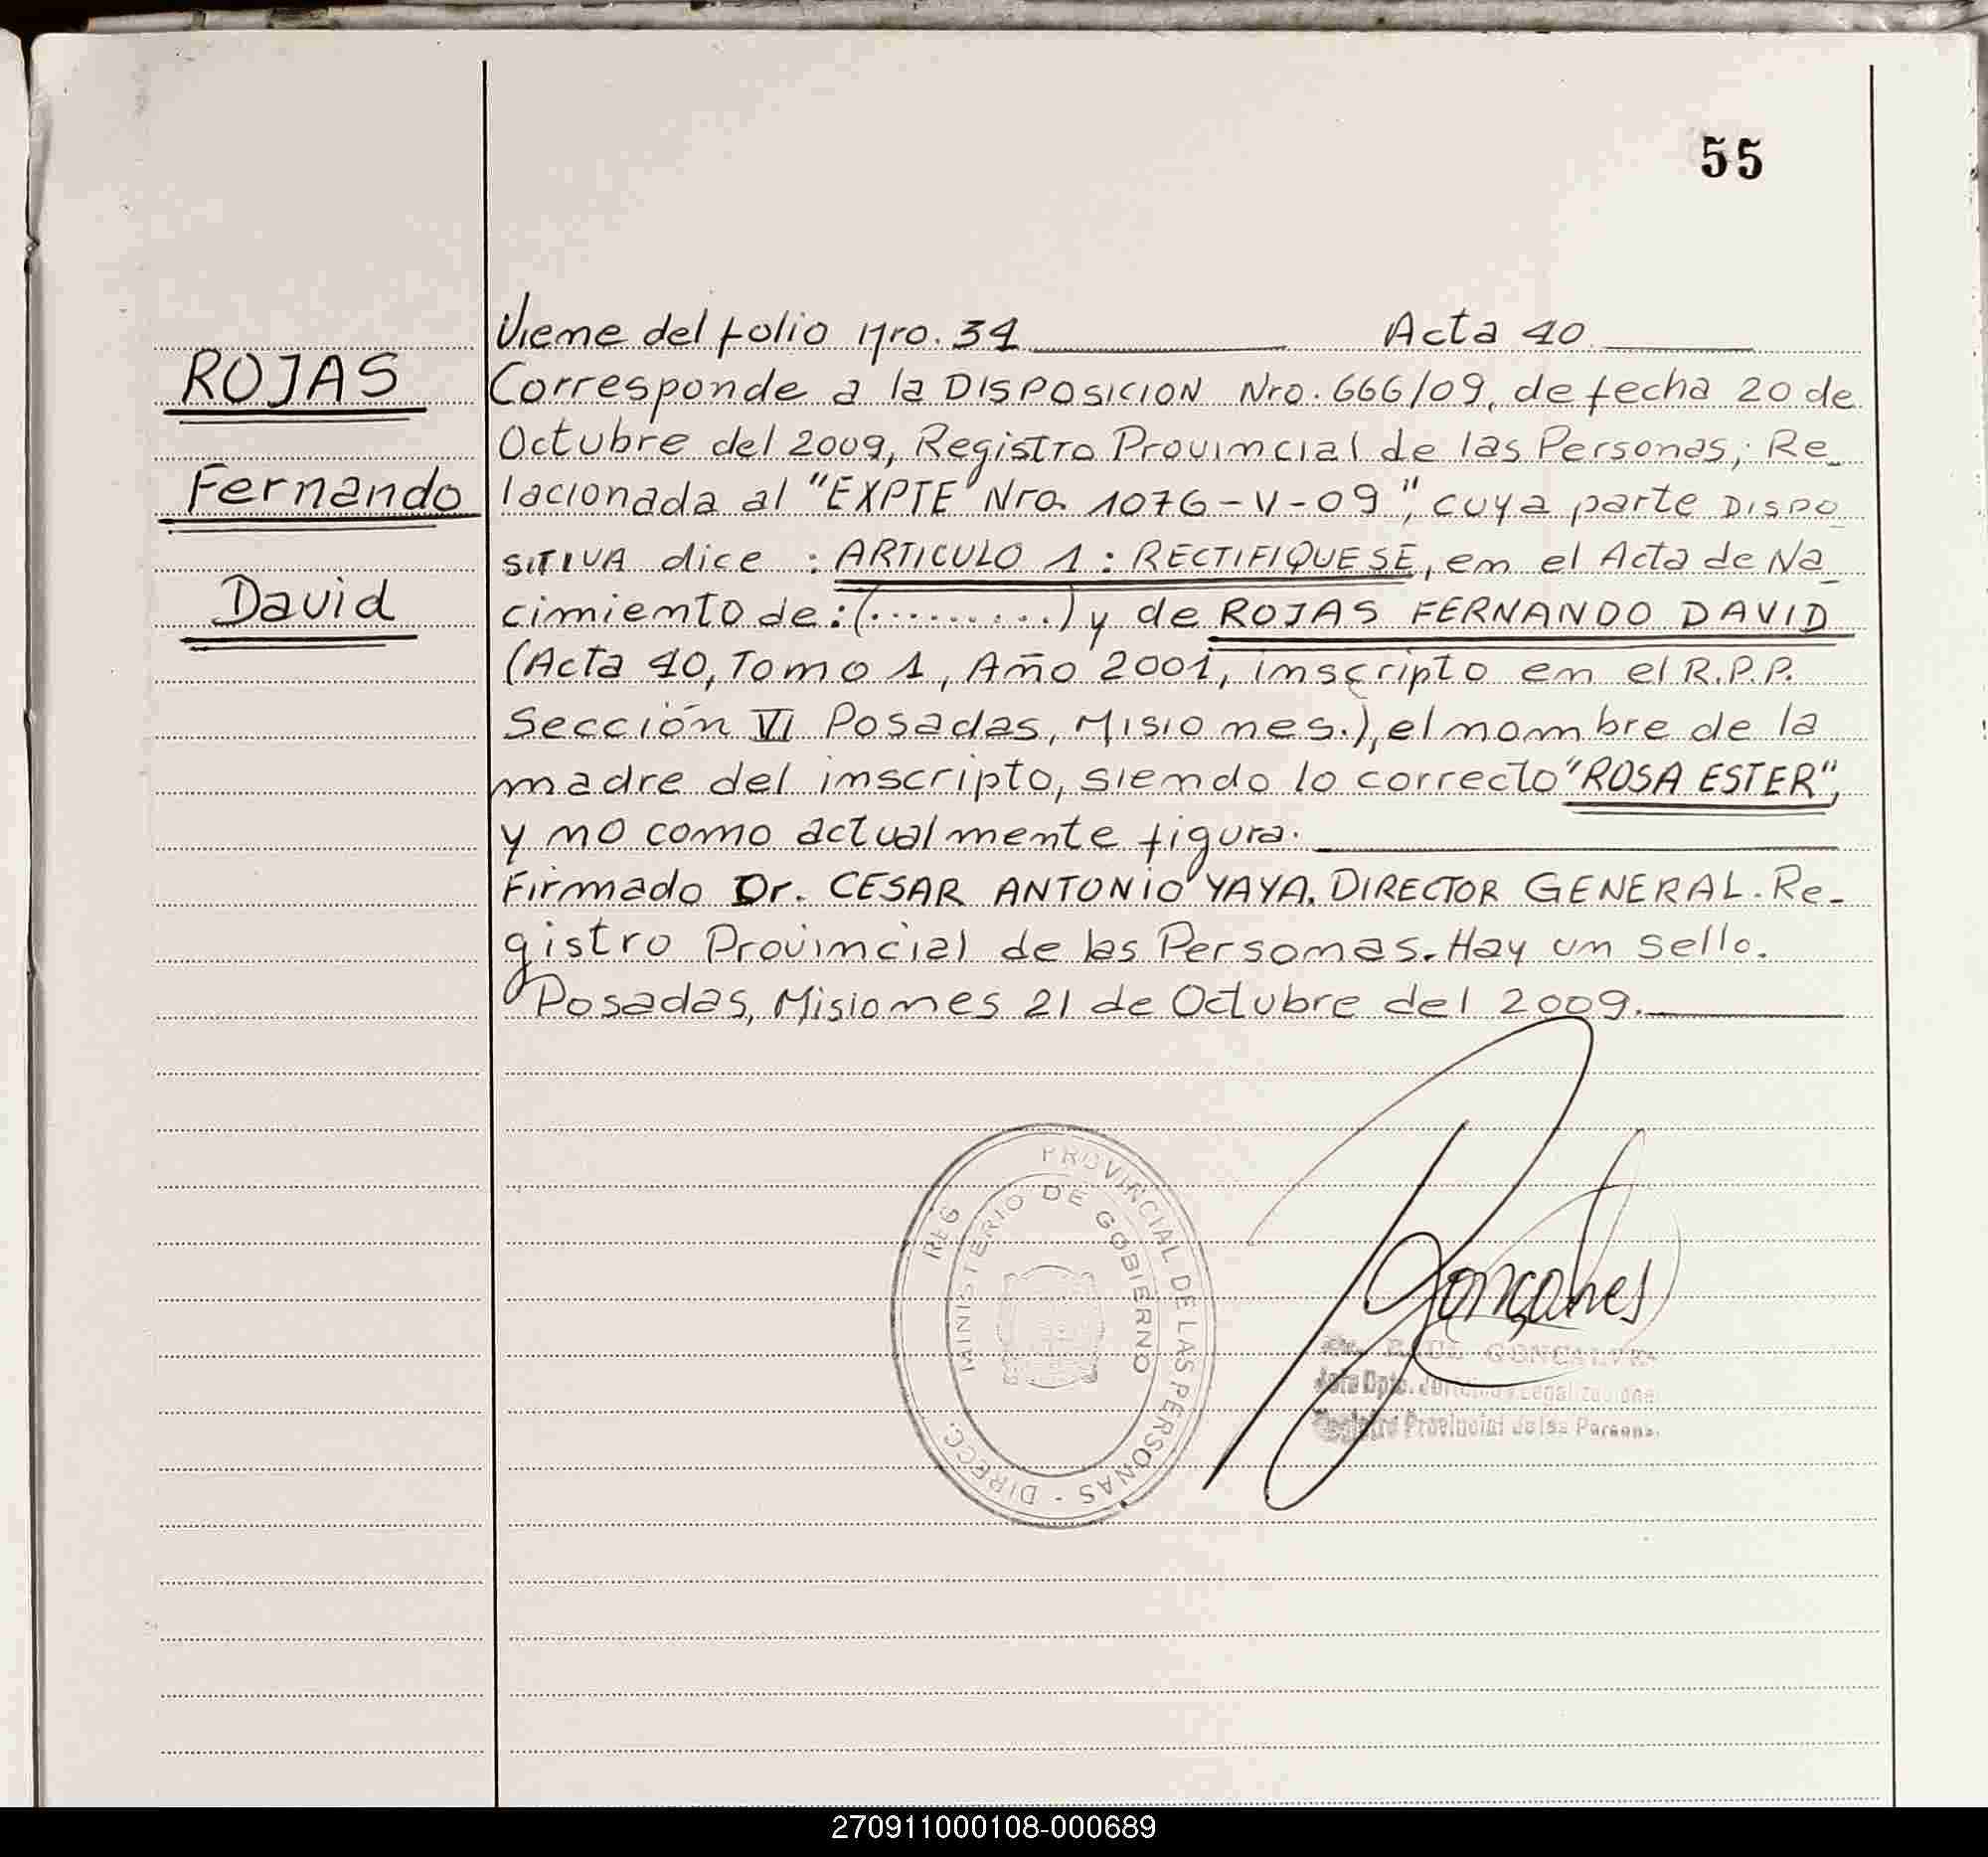 55
Viene del folio Nro. 34 Acta 40
ROJAS
Corresponde a la DISPOSICION Nro. 666/09, de fecha 20 de
Octubre del 2009, Registro Provincial de las Personas; Re_
Fernando
lacionada al "EXPTE Nro. 1076-V-09", cuya parte DISPO_
SITIVA dice : ARTICULO 1 : RECTIFIQUESE, en el Acta de Na_
David
cimiento de:(.........) y de ROJAS FERNANDO DAVID
(Acta 40, Tomo 1, Año 2001, inscripto en el R.P.P.
Sección VI Posadas, Misiones.), el nombre de la
madre del inscripto, siendo lo correcto "ROSA ESTER",
y no como actualmente figura.
Firmado Dr. CESAR ANTONIO YAYA. DIRECTOR GENERAL. Re-
gistro Provincial de las Personas. Hay un sello.
Posadas, Misiones 21 de Octubre del 2009.
DIRECC. REG PROVINCIAL DE LAS PERSONAS -
MINISTERIO DE GOBIERNO
Gonçalves
RAUL GONCALVES
Jefe Dpto. Jurídico y Legalizaciones
Registro Provincial de las Persons.
270911000108-000689